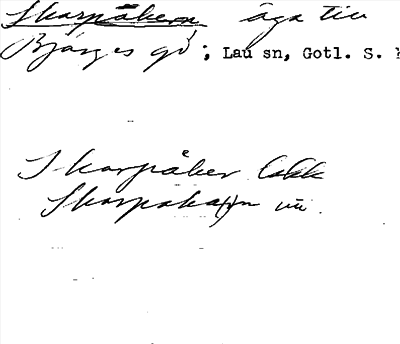 Skarpåkern äga till
Bjärges gd; Lau sn, Gotl. S.
Skarpåker
Skarpåka(r)n